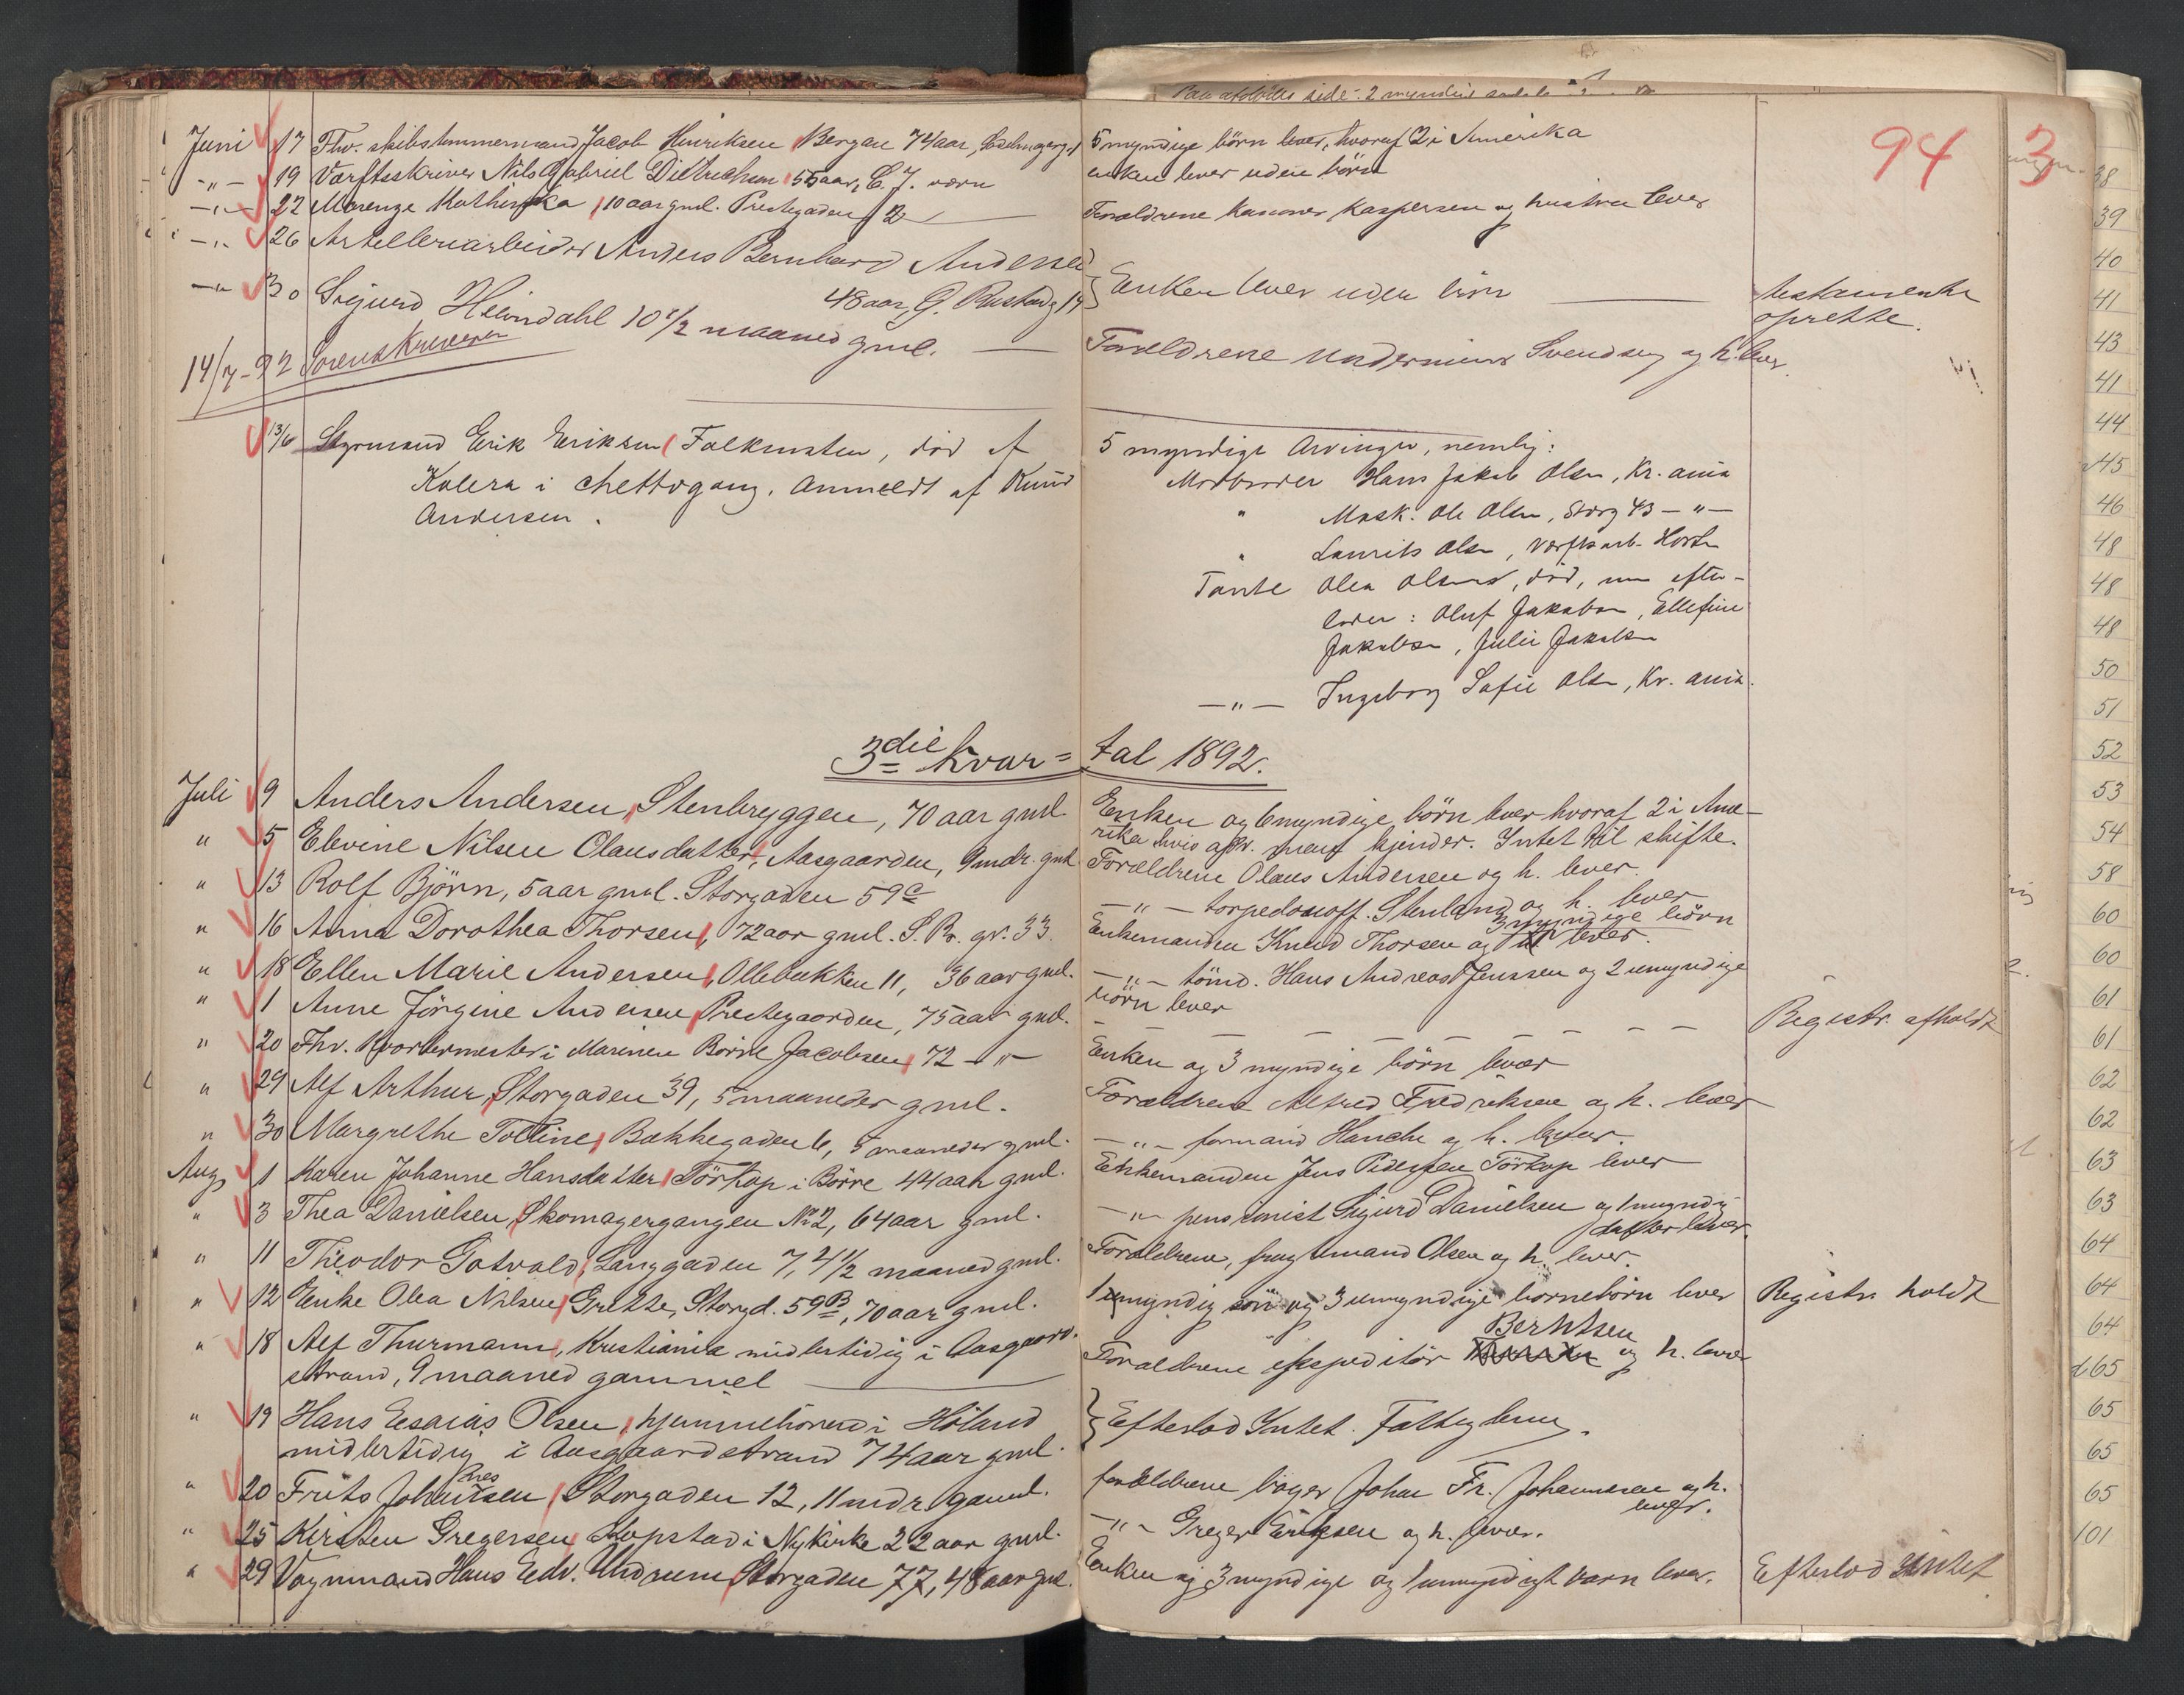 94
3
Juni 17 Fhv. skibstømmermand Jacob Henriksen Bergan 74 aar, 5 myndige börn lever, hvoraf 2 i Amerika
-"- 19 Værftsskriver Nils Gabriel Dietrichson 55 aar, C. J. værn enken lever uden börn
-"- 22 Marenze Mathinka 10 aar gml. Prestegaden 2 Foraldrene kanoner Kaspersen og hustru lever
-"- 26 Artelleriarbeider Anders Bernhard Andersen
48 aar, G. 14 Enken lever uden börn testamente
oprette.
-"- 30 Sigurd Heimdahl 10 1/2 maaned gml. Foreldrene Underminør Svendsen og h. lever.
14/7-92 Sorenskriveren
13/6 Styrmand Erik Eriksen Falkensten, död af 5 myndige Arvinger, nemlig:
Kolera i Chettogang. Anmeldt af Knud Morbroder Hans Jakob Olsen, Kr.ania
Andersen. " Mask. Ole Olsen, Storg 43 -"-
" Laurits Olsen, Værftsarb. Horten
Tante Olea Olsen, död, efter-
lader: Oluf Jakobsen, Ellefine
Jakobsen, Julie Jakobsen
-"- Ingeborg Sofie Olsen, Kr.ania.
3die kvar= tal 1892.
Juli 9 Anders Andersen, Stenbryggen, 70 aar gml. Enken og 6 myndige börn lever hvoraf 2 i Ame-
rika hvis man kjender. Intet til skifte.
" 5 Elevine Nilsen Olausdatter, Aasgaarden, 9 mdr. gml. Foraldrene Olaus Andersen og h. lever.
" 13 Rolf Björn, 5 aar gml. Storgaden 59c -"- torpedouoff. Stenland og h. lever
" 16 Anna Dorothea Thorsen, 72 aar gml. S. Br. gr. 33. Enkemanden Knud Thorsen og 3 myndige börn lever.
" 18 Ellen Marie Andersen, Ollebakken 11, 36 aar gml. -"- tömd. Hans Andreas Jenssen og 2 umyndige
börn lever
" 1 Anne Jörgine Andersen Prestegaarden, 75 aar gml. - - - - Registr. afholdt
" 20 Fhv. Kvartermester i Marinen Borre Jacobsen, 72 -"- Enken og 3 myndige börn lever
" 29 Alf Arthur, Storgaden 39, 5 maaneder gml. Foraldrene Alfred Fredriksen og h. lever
" 30 Margrethe Tolline, Bakkegaden 6, 5 maaneder gml. -"- formand Hanche og h. lever.
Aug 1 Karen Johanne Hansdatter Törkop i Börre 44 aar gml. Enkemanden Jens Pedersen Törkop lever
" 3 Thea Danielsen, Skomagergangen No 2, 64 aar gml. -"- pensionist Sigurd Danielsen og 1 myndig
datter lever.
" 11 Theodor Gotvald, Langgaden 7, 4 1/2 maaned gml. Foraldrene, Olsen og h. lever.
" 12 Enke Olea Nilsen Grette, Storgd. 59B, 70 aar gml. 1 umyndig sön og 3 umyndige bornebörn lever Registr. holdt
" 18 Alf Thurmann, Kristiania midlertidig i Aasgaard- Berntsen
strand, 9 maaned gammel Foraldrene expeditör og h. lever
" 19 Hans Esaias Olsen, hjemmehörende i Höland Efterlod Intet. Fattiglem.
midlertidig i Aasgaardstrand 74 aar gml.
" 20 Frits Johannesen, Storgaden 12, 11 mdr. gaml. foraldrene bager Johan Fr. Johannesen og h.
lever.
" 25 Kirsten Gregersen Kopstad i Nykirke 22 aar gml. -"- Greger Eriksen og h. lever.
" 29 Vognmand Hans Edv. Undrum Storgaden 77, 48 aar gml. Enken og 3 myndige og 1 umyndigt barn lever. Efterlod Intet
38
39
40
41
43
41
44
45
46
48
48
48
50
51
52
53
54
58
60
60
61
61
62
62
63
63
64
64
64
65
65
65
65
101